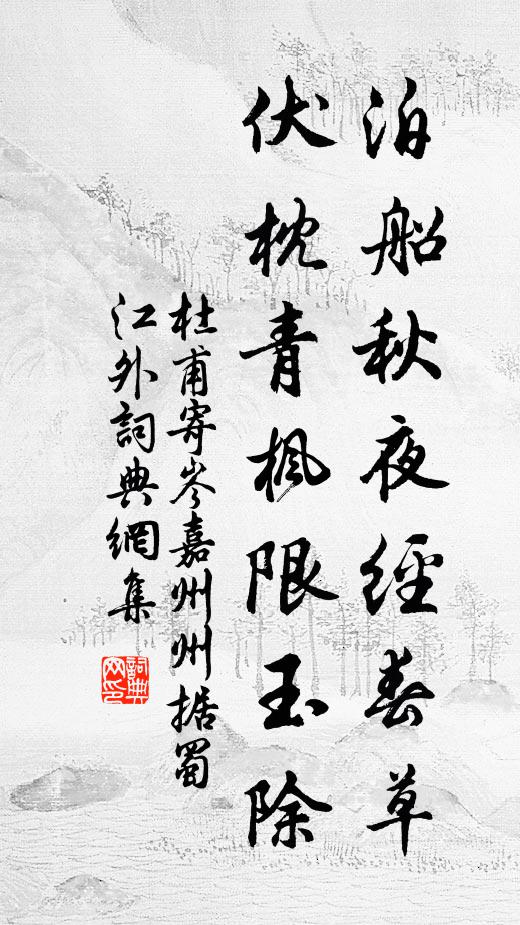 泊船秋夜經春草
伏枕青楓限玉除
杜甫寄岑嘉州州据蜀
江外詞典網集
詞典網印